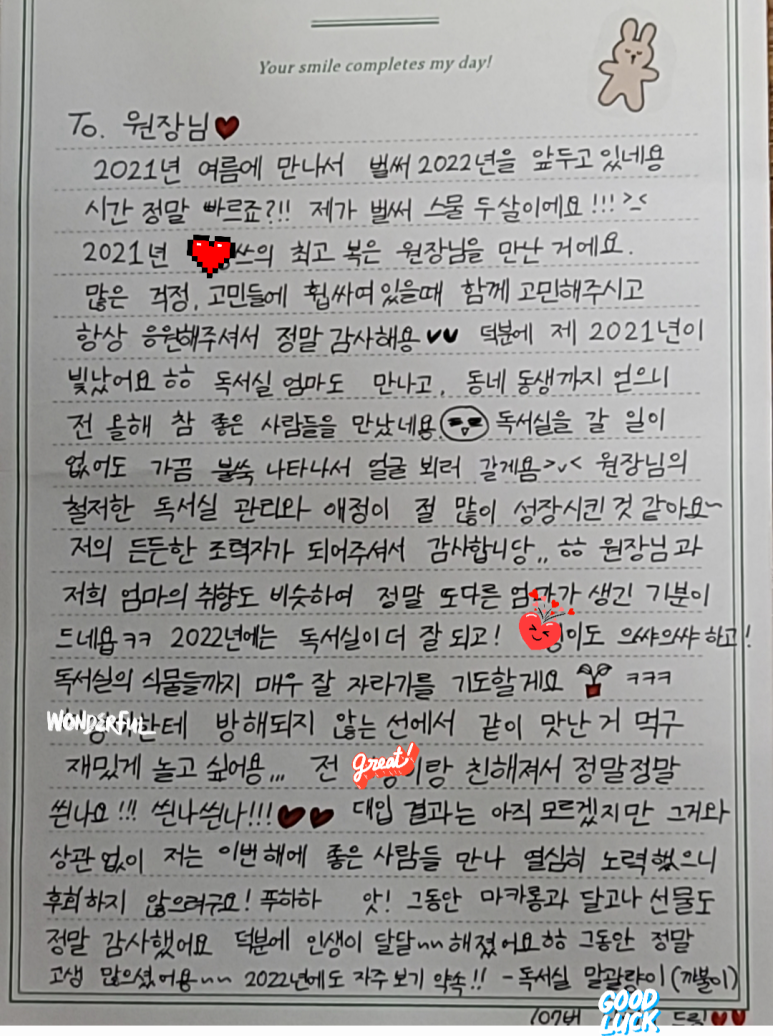 Your smile completes my day!
To. 원장님♥
2021년 여름에 만나서 벌써 2022년을 앞두고 있네용
시간 정말 빠르죠?!! 제가 벌써 스물 두살이에요!!! >_<
2021년 쓰의 최고 복은 원장님을 만난 거에요.
많은 걱정, 고민들에 휩싸여 있을때 함께 고민해주시고
항상 응원해주셔서 정말 감사해용♥♥ 덕분에 제 2021년이
빛났어요 ㅎㅎ 독서실 엄마도 만나고, 동네 동생까지 얻으니
전 올해 참 좋은 사람들을 만났네용. 독서실을 갈 일이
없어도 가끔 불쑥 나타나서 얼굴 뵈러 갈게욤>v< 원장님의
철저한 독서실 관리와 애정이 절 많이 성장시킨 것 같아요~
저의 든든한 조력자가 되어주셔서 감사합니당,, ㅎㅎ 원장님과
저희 엄마의 취향도 비슷하여 정말 또다른 엄마가 생긴 기분이
드네욥 ㅋㅋ 2022년에는 독서실이 더 잘 되고! 이도 으쌰으쌰 하고!
독서실의 식물들까지 매우 잘 자라기를 기도할게요 ㅋㅋㅋ
WONDERFUL 한테 방해되지 않는 선에서 같이 맛난 거 먹구
재밌게 놀고 싶어용,,, 전 great! 이랑 친해져서 정말정말
씐나요!!! 씐나씐나!!!♥♥ 대입 결과는 아직 모르겠지만 그거와
상관없이 저는 이번 해에 좋은 사람들 만나 열심히 노력했으니
후회하지 않으려구요! 푸하하 앗! 그동안 마카롱과 달고나 선물도
정말 감사했어요 덕분에 인생이 달달~~ 해졌어요ㅎㅎ 그동안 정말
고생 많으셨어용~~ 2022년에도 자주 보기 약속!! - 독서실 말괄량이(까불이)
107번 GOOD LUCK 드림♥♥